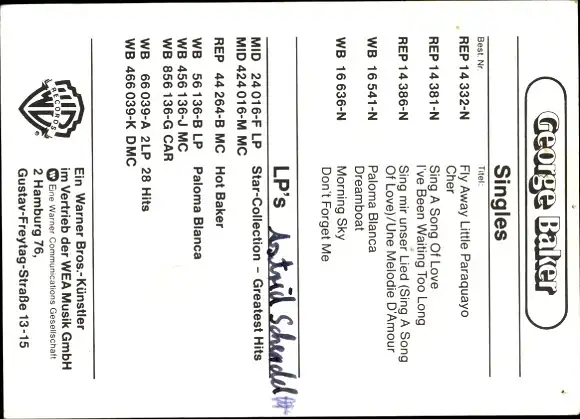 George Baker
Singles
Best. Nr. Titel:
REP 14 332-N Fly Away Little Paraquayo
Cher
REP 14 381-N Sing A Song Of Love
I've Been Waiting Too Long
REP 14 386-N Sing mir unser Lied (Sing A Song
Of Love)/Une Melodie D'Amour
WB 16 541-N Paloma Blanca
Dreamboat
WB 16 636-N Morning Sky
Don't Forget Me
LP's Astrid Schendel
MID 24 016-F LP Star-Collection – Greatest Hits
MID 424 016-M MC
REP 44 264-B MC Hot Baker
WB 56 136-B LP Paloma Blanca
WB 456 136-J MC
WB 856 136-G CAR
WB 66 039-A 2LP 28 Hits
WB 466 039-K DMC
WB
RECORDS
Ein Warner Bros.-Künstler
im Vertrieb der WEA Musik GmbH
Eine Warner Communications Gesellschaft
2 Hamburg 76,
Gustav-Freytag-Straße 13-15